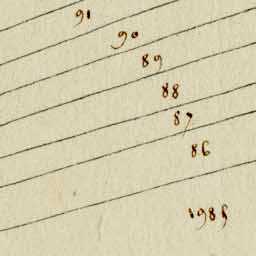 91
90
89
88
87
86
1985